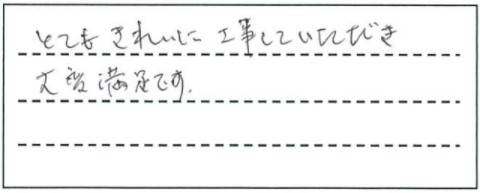 とてもきれいに工事していただき
大変満足です.